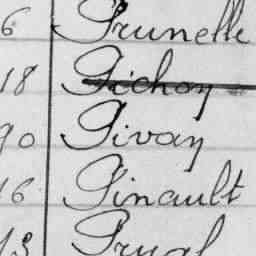 6 Prunelle
18 Pichon
90 Pivan
16 Pinault
13 Prual